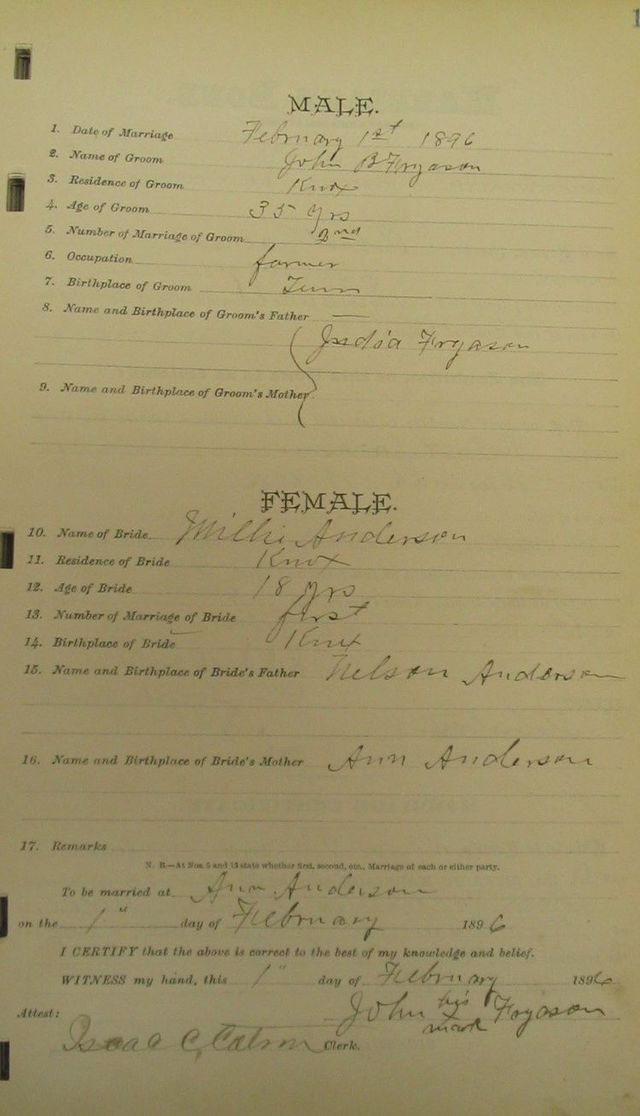 1
MALE.
1. Date of Marriage February 1st 1896
2. Name of Groom John B Frgason
3. Residence of Groom Knox
4. Age of Groom 35 yrs
5. Number of Marriage of Groom 2nd
6. Occupation farmer
7. Birthplace of Groom Tenn
8. Name and Birthplace of Groom's Father —
Frgason
9. Name and Birthplace of Groom's Mother
FEMALE.
10. Name of Bride Millie Anderson
11. Residence of Bride Knox
12. Age of Bride 18 yrs
13. Number of Marriage of Bride first
14. Birthplace of Bride Knox
15. Name and Birthplace of Bride's Father Nelson Anderson
16. Name and Birthplace of Bride's Mother Ann Anderson
17. Remarks
N. B.—At Nos. 5 and 13 state whether first, second, etc., Marriage of each or either party.
To be married at Ann Anderson
on the 1" day of February 1896
I CERTIFY that the above is correct to the best of my knowledge and belief.
WITNESS my hand, this 1" day of February 1896
his
John Frgason
mark
Attest:
Isaac C, Clerk.